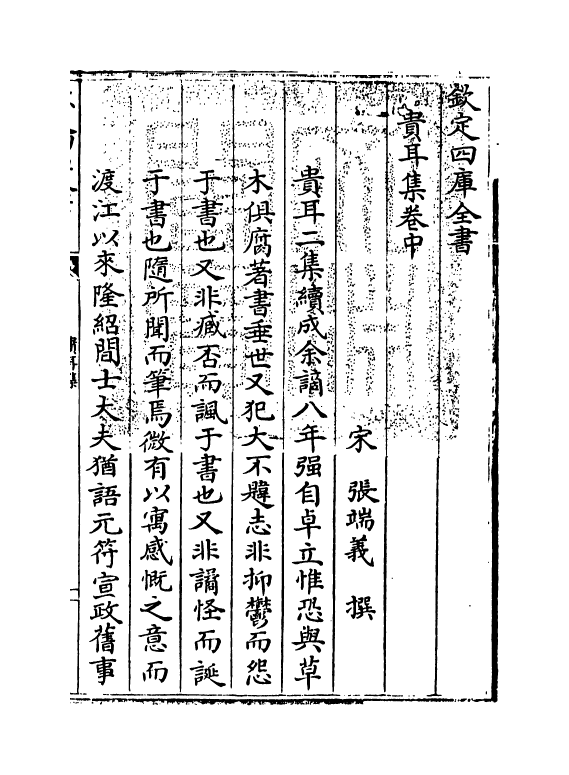 欽定四庫全書
貴耳集卷中
宋 張端義 撰
貴耳二集續成余謫八年强自卓立惟恐與草
木俱腐著書垂世又犯大不韙志非抑鬱而怨
于書也又非臧否而諷于書也又非譎怪而誕
于書也隨所聞而筆焉微有以寓感慨之意而
渡江以來隆紹間士大夫猶語元符宣政舊事